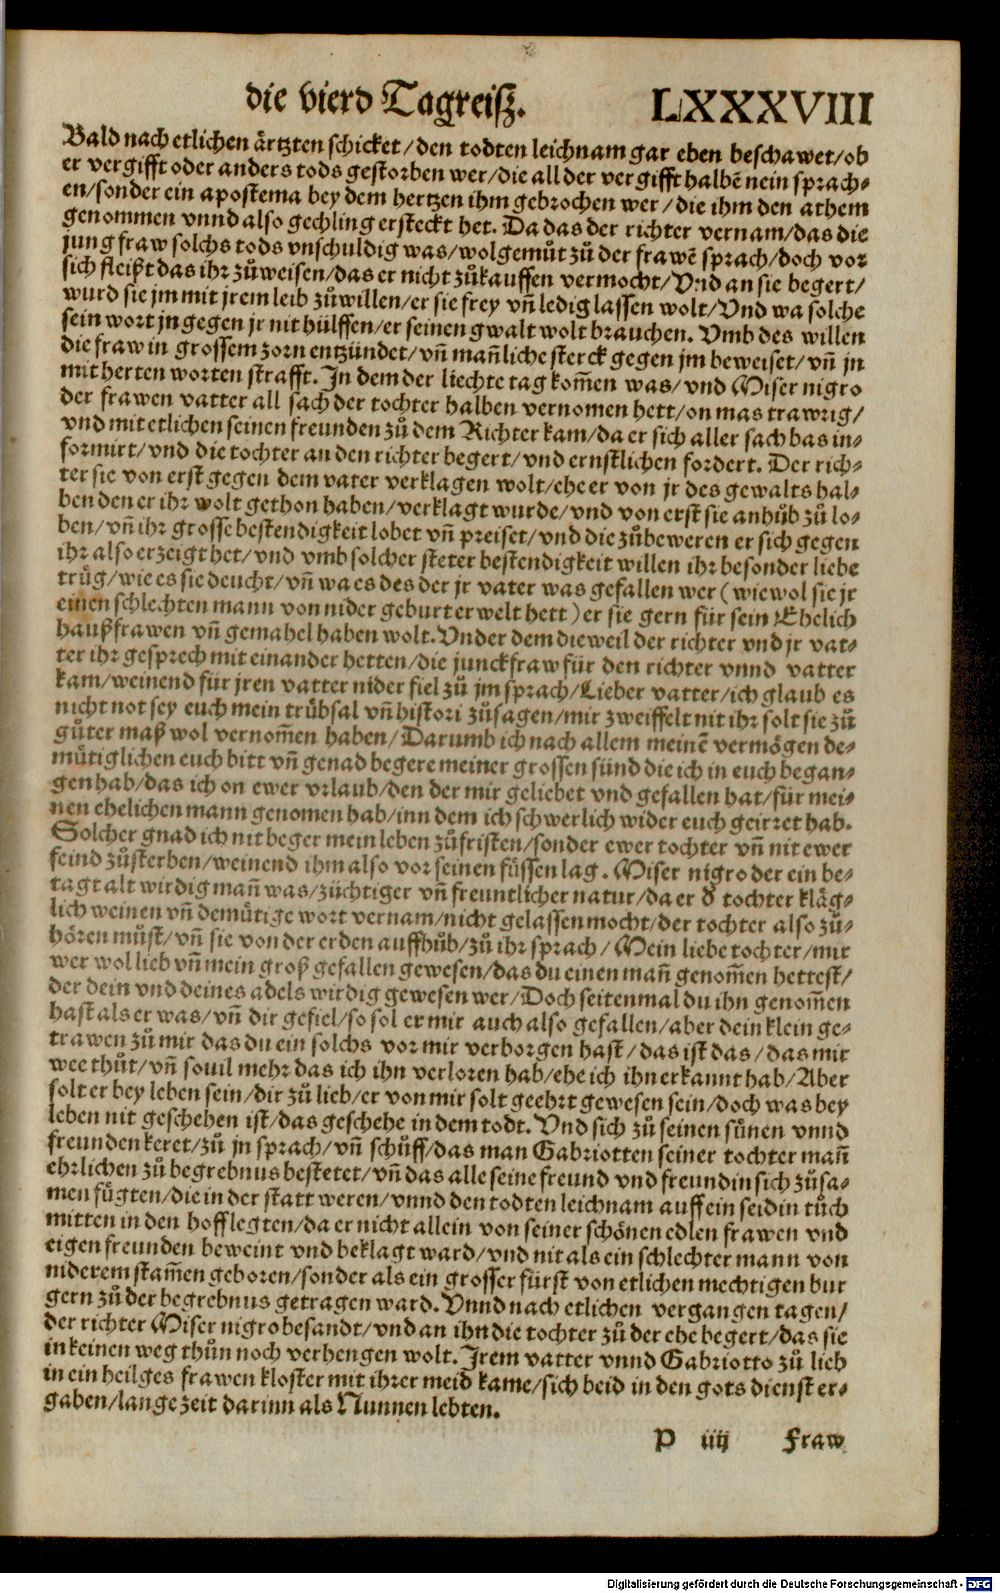 die vierd Tagreisz. LXXXVIII
Bald nach etlichen ärtzten schicket/den todten leichnam gar eben beschawet/ob
er vergifft oder anders tods gestorben wer/die all der vergifft halbē nein sprach-
en/sonder ein apostema bey dem hertzen ihm gebrochen wer/die ihm den athem
genommen vnnd also gechling ersteckt het. Da das der richter vernam/das die
jungfraw solchs tods vnschuldig was/wolgemůt zů der frawē sprach/doch vor
sich fleißt das ihr zůweisen/das er nicht zůkauffen vermocht/Vnd an sie begert/
wurd sie jm mit jrem leib zůwillen/er sie frey vñ ledig lassen wolt/Vnd wa solche
sein wort jn gegen jr nit hülffen/er seinen gwalt wolt brauchen. Vmb des willen
die fraw in grossem zorn entzündet/vñ mañliche sterck gegen jm beweiset/vñ jn
mit herten worten strafft. In dem der liechte tag kom̃en was/vnd Miser nigro
der frawen vatter all sach der tochter halben vernomen hett/on mas trawrig/
vnd mit etlichen seinen freunden zů dem Richter kam/da er sich aller sach bas in-
formirt/vnd die tochter an den richter begert/vnd ernstlichen fordert. Der rich-
ter sie von erst gegen dem vater verklagen wolt/ehe er von jr des gewalts hal-
ben den er ihr wolt gethon haben/verklagt wurde/vnd von erst sie anhůb zů lo-
ben/vñ ihr grosse bestendigkeit lobet vñ preiset/vnd die zůbeweren er sich gegen
ihr also erzeigt het/vnd vmb solcher steter bestendigkeit willen ihr besonder liebe
trüg/wie es sie deucht/vñ wa es des der jr vater was gefallen wer (wiewol sie jr
einen schlechten mann von nider geburt erwelt hett) er sie gern für sein Ehelich
haußfrawen vñ gemahel haben wolt. Vnder dem dieweil der richter vnd jr vat-
ter ihr gesprech mit einander hetten/die junckfraw für den richter vnnd vatter
kam/weinend für jren vatter nider fiel zů jm sprach/Lieber vatter/ich glaub es
nicht not sey euch mein trübsal vñ histori zůsagen/mir zweiffelt nit ihr solt sie zů
gůter maß wol vernom̃en haben/Darumb ich nach allem meinē vermögen de-
mütiglichen euch bitt vñ genad begere meiner grossen sünd die ich in euch began-
gen hab/das ich on ewer vrlaub/den der mir geliebet vnd gefallen hat/für mei-
nen ehelichen mann genomen hab/inn dem ich schwerlich wider euch geirret hab.
Solcher gnad ich nit beger mein leben zůfristen/sonder ewer tochter vñ nit ewer
feind zůsterben/weinend ihm also vor seinen füssen lag. Miser nigro der ein be-
tagt alt wirdig mañ was/züchtiger vñ freuntlicher natur/da er d̕ tochter kläg-
lich weinen vñ demütige wort vernam/nicht gelassen mocht/der tochter also zů-
hören můst/vñ sie von der erden auffhůb/zů ihr sprach/Mein liebe tochter/mir
wer wol lieb vñ mein groß gefallen gewesen/das du einen mañ genom̃en hettest/
der dein vnd deines adels wirdig gewesen wer/Doch seitenmal du ihn genom̃en
hast als er was/vñ dir gefiel/so sol er mir auch also gefallen/aber dein klein ge-
trawen zů mir das du ein solchs vor mir verborgen hast/das ist das/das mir
wee thůt/vñ souil mehr das ich ihn verloren hab/ehe ich ihn erkannt hab/Aber
solt er bey leben sein/dir zů lieb/er von mir solt geehrt gewesen sein/doch was bey
leben nit geschehen ist/das geschehe in dem todt. Vnd sich zů seinen sünen vnnd
freunden keret/zů jn sprach/vñ schůff/das man Gabriotten seiner tochter mañ
ehrlichen zů begrebnus bestetet/vñ das alle seine freund vnd freundin sich zůsa-
men fügten/die in der statt weren/vnnd den todten leichnam auff ein seidin tůch
mitten in den hoff legten/da er nicht allein von seiner schönen edlen frawen vnd
eigen freunden beweint vnd beklagt ward/vnd nit als ein schlechter mann von
niderem stam̃en geboren/sonder als ein grosser fürst von etlichen mechtigen bur
gern zů der begrebnus getragen ward. Vnnd nach etlichen vergangen tagen/
der richter Miser nigro besandt/vnd an ihn die tochter zů der ehe begert/das sie
in keinen weg thůn noch verhengen wolt. Irem vatter vnnd Gabriotto zů lieb
in ein heilges frawen kloster mit ihrer meid kame/sich beid in den gots dienst er-
gaben/lange zeit darinn als Nunnen lebten.
P iiij Fraw
Digitalisierung gefördert durch die Deutsche Forschungsgemeinschaft - DFG